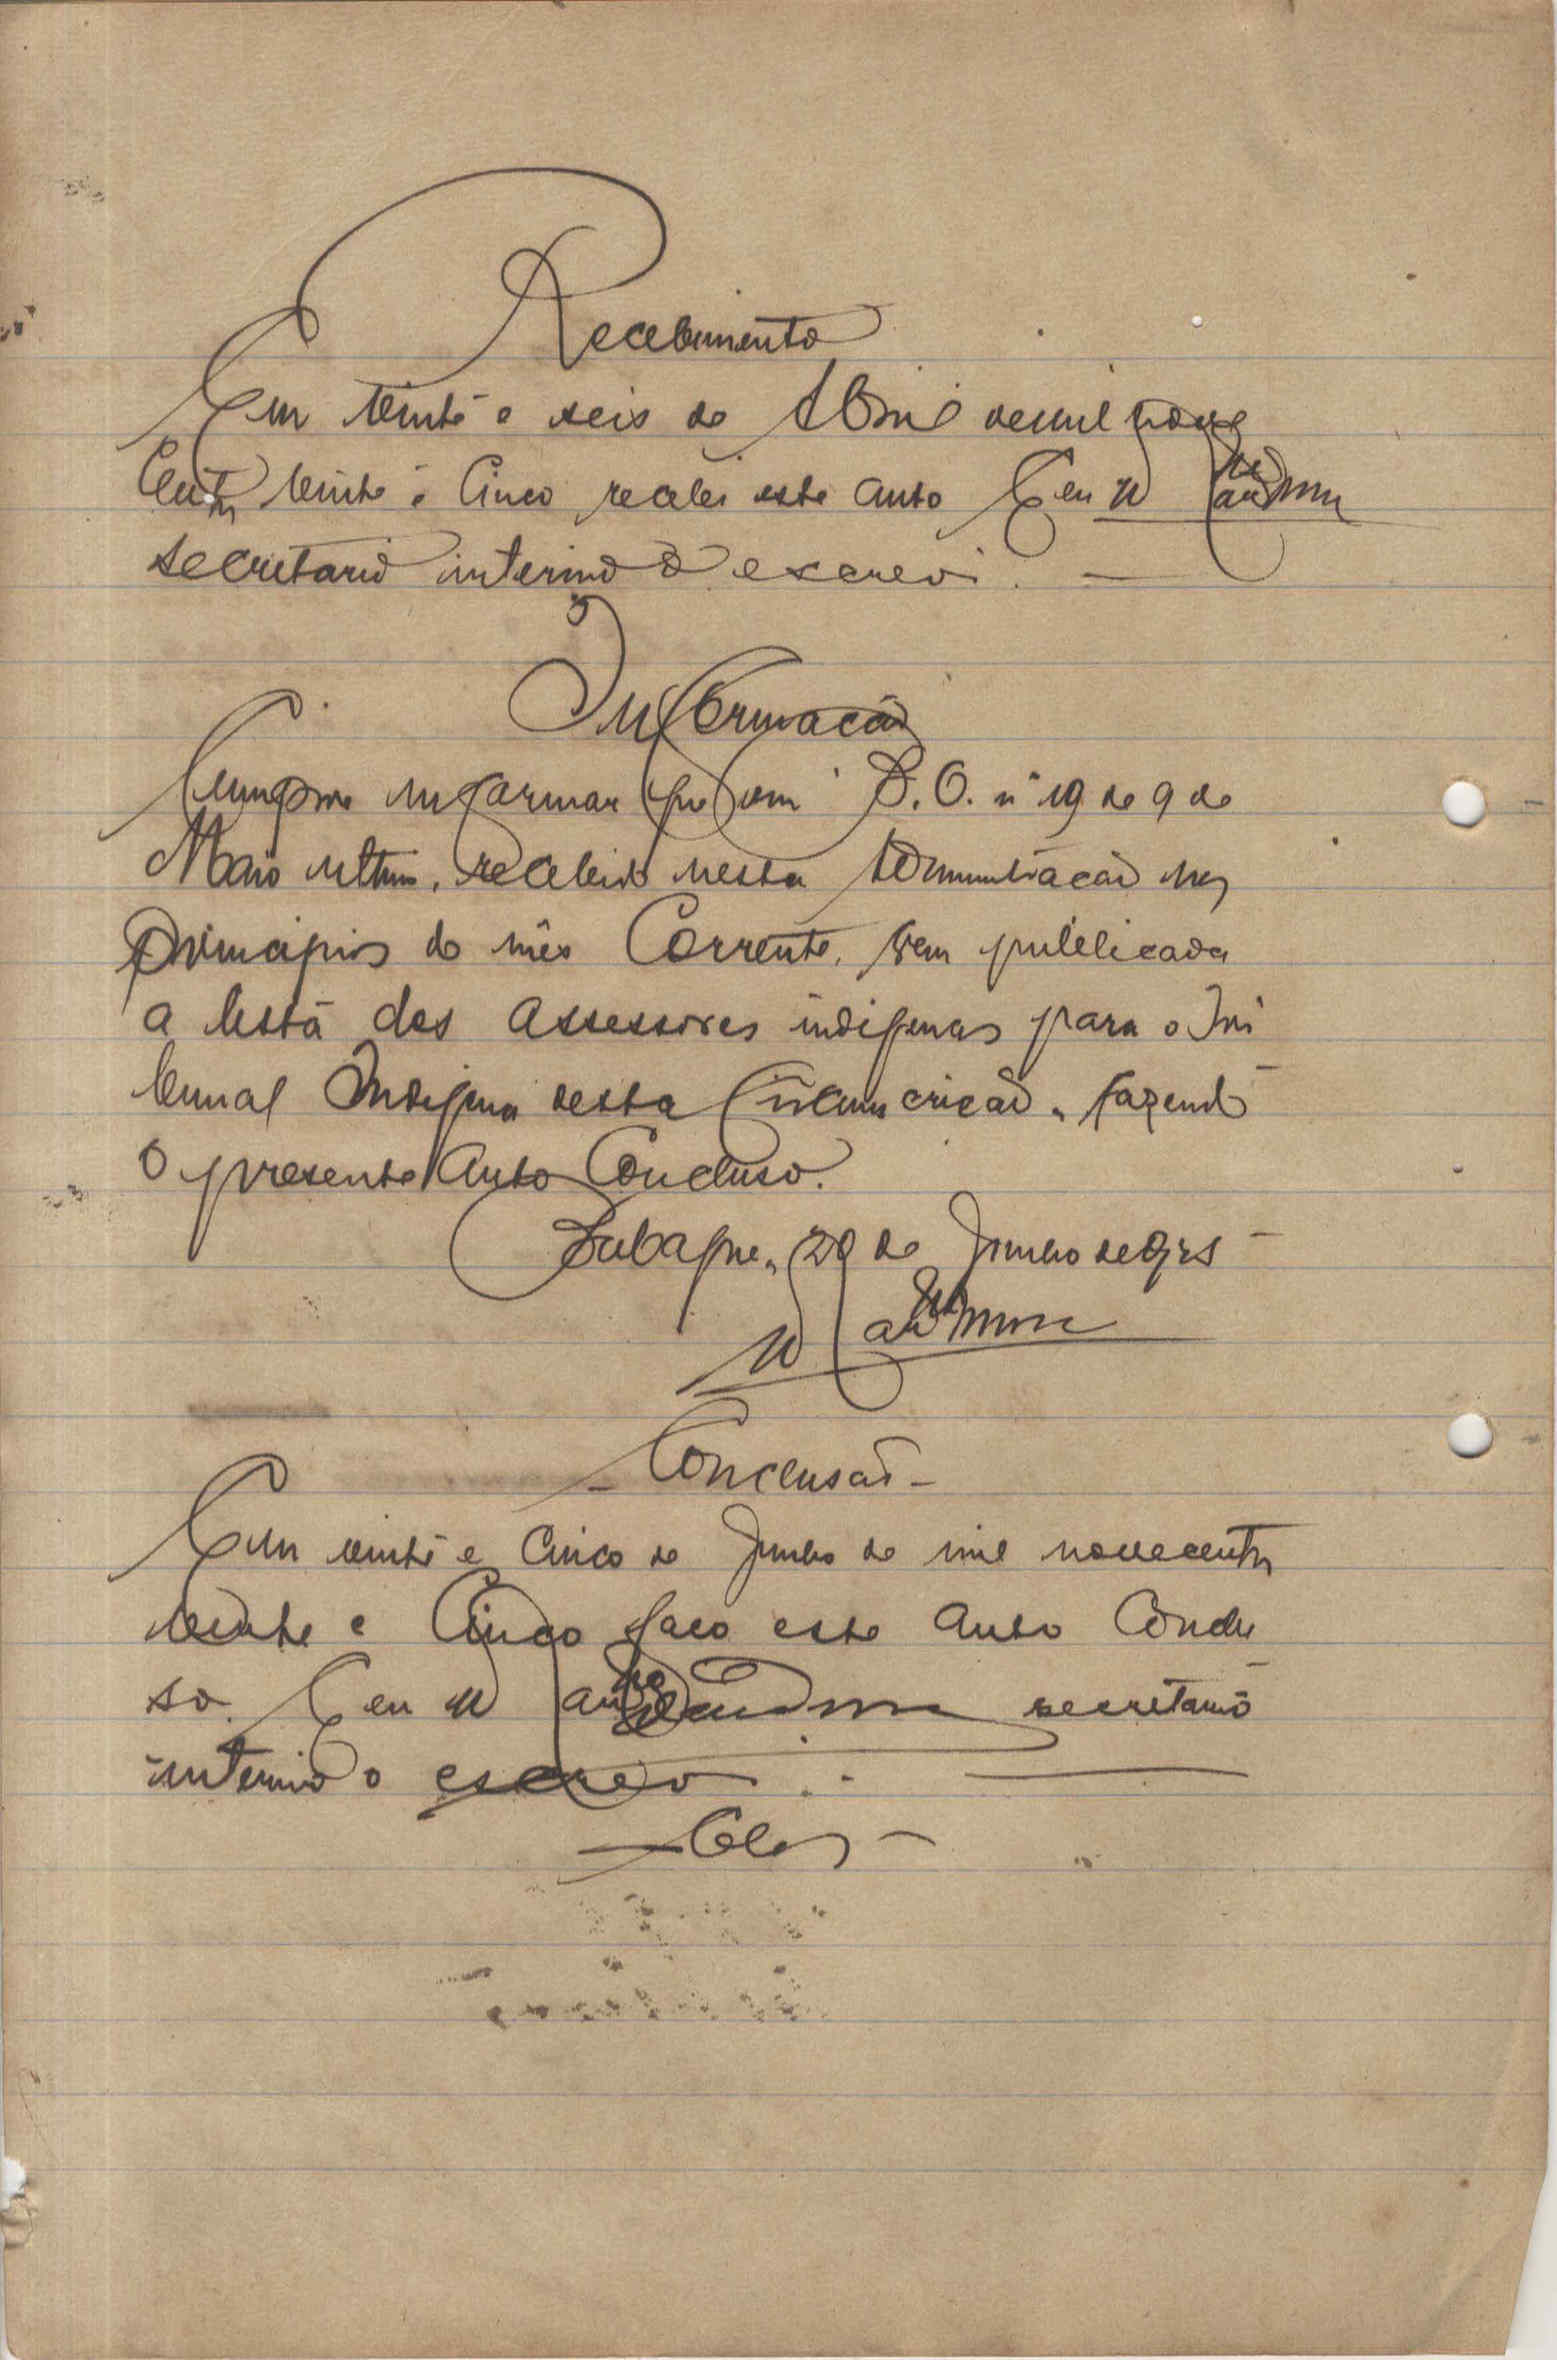 Recebimento
Em vinte e seis de Abril de mil nove
centos vinte e cinco recebi este auto E eu
secretario interino o escrevi.
Informação
Cumpre informar que em B.O. nº 19 de 9 de
Maio ultimo, recebido nesta administração nos
principios do mês corrente, vem publicada
a lista dos assessores indigenas para o Tri
bunal Indigena desta Circunscrição, fazendo
o presente auto Concluso.
de Junho de 925
- Conclusão -
Em vinte e cinco de Junho de mil novecentos
vinte e cinco faço este auto Conclu
so. E eu secretario
interino o escrevi.
- Clos -